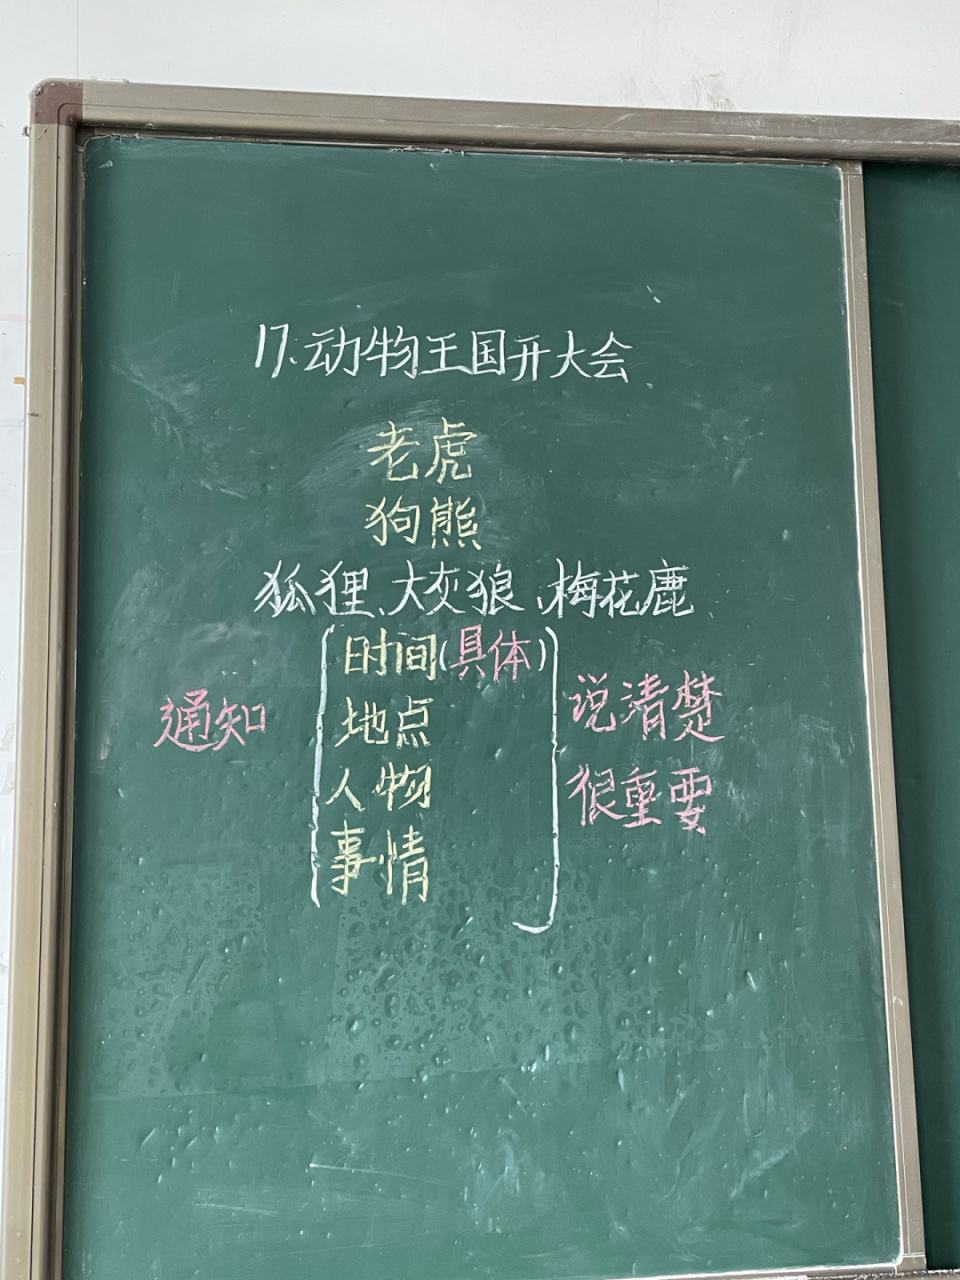 17.动物王国开大会
老虎
狗熊
狐狸、大灰狼、梅花鹿
时间(具体)
地点
人物
事情
通知
说清楚
很重要